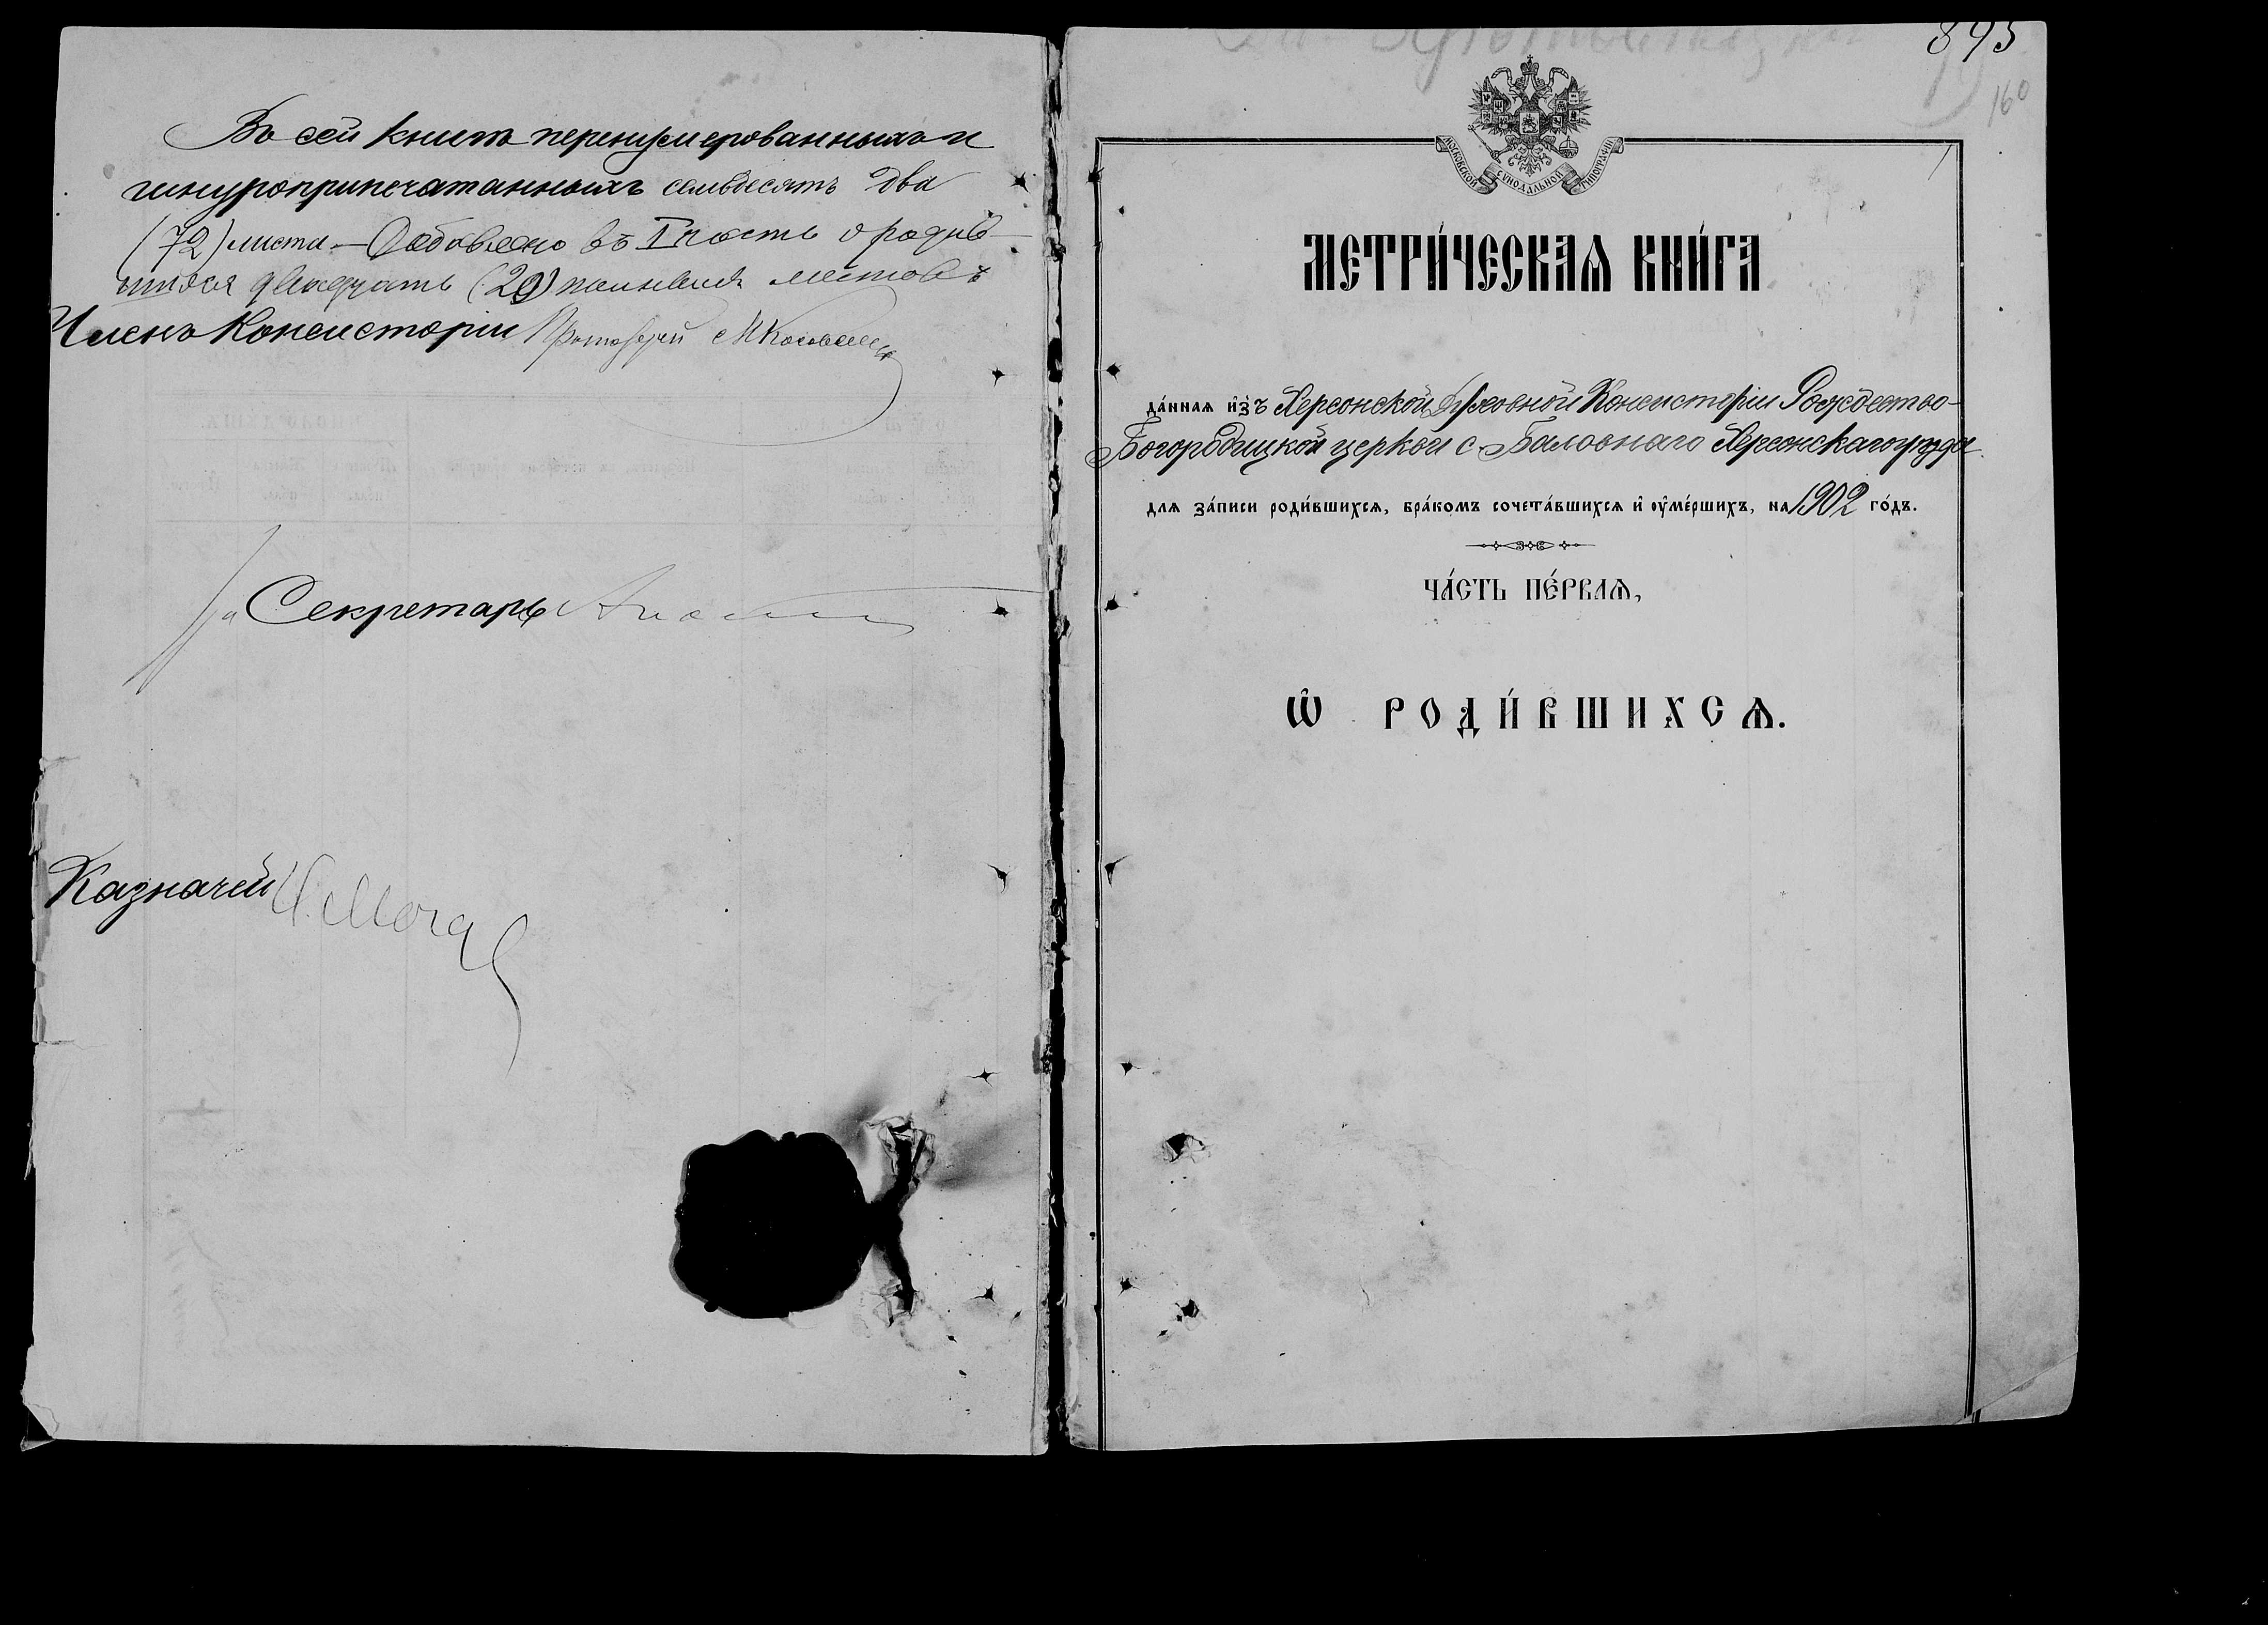 Въ сей книгѣ перенумерованныхъ и
шнуроприпечатанныхъ семьдесятъ два
(72) листа. — Добавлено въ I часть о родив-
шихся двадцать (20) листовъ
Членъ Консисторіи Протоіерей
Секретарь
Казначей
895
160
1
МОСКОВСКОЙ СѴНОДАЛЬНОЙ ТИПОГРАФІИ
МЕТРИ́ЧЕСКАѦ КНИ́ГА
да́ннаѧ и҆зъ Херсонской Духовной Консисторіи Рождество-
Богородицкой церкви с. Баловнаго Херсонскаго уѣзда
длѧ за́писи роди́вшихсѧ, бра́комъ сочета́вшихсѧ и҆ оу҆ме́ршихъ, на 1902 го́дъ.
ЧА́СТЬ ПЕ́РВАѦ,
Ѡ҆ РОДИ́ВШИХСѦ.